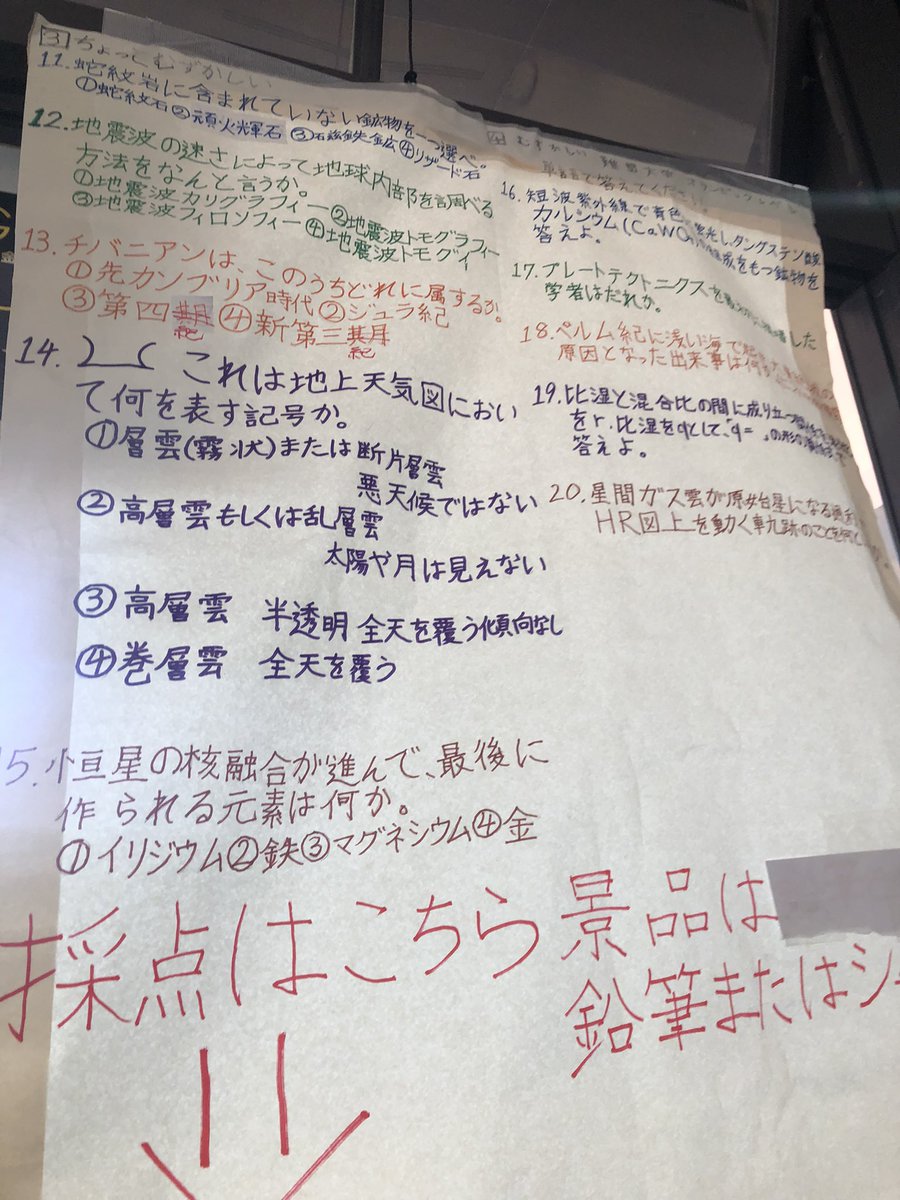 3 ちょっとむずかしい
11. 蛇紋岩に含まれていない鉱物を一つ選べ。
①蛇紋石②頑火輝石③磁鉄鉱④リザード石
12. 地震波の速さによって地球内部を調べる
方法をなんと言うか。
①地震波カリグラフィー②地震波トモグラフィー
③地震波フィロソフィー④地震波トモグィー
13. チバニアンは、このうちどれに属するか。
①先カンブリア時代②ジュラ紀
③第四紀④新第三紀
14. これは地上天気図におい
て何を表す記号か。
①層雲(霧状)または断片層雲
悪天候ではない
②高層雲もしくは乱層雲
太陽や月は見えない
③高層雲 半透明 全天を覆う傾向なし
④巻層雲 全天を覆う
15. 恒星の核融合が進んで、最後に
作られる元素は何か。
①イリジウム②鉄③マグネシウム④金
4 むずかしい
単語で答えてください
16. 短波紫外線で青色に蛍光し、タングステン酸
カルシウム(CaWO₄)の組成をもつ鉱物を
答えよ。
17. プレートテクトニクスを
学者はだれか。
18. ペルム紀に浅い海で
原因となった出来事は何
19. 比湿と混合比の間に成り立つ
をr、比湿をqとして、"q= "の形
答えよ。
20. 星間ガス雲が原始星になる
HR図上を動く軌跡のことを何
採点はこちら
景品は
鉛筆またはシャ